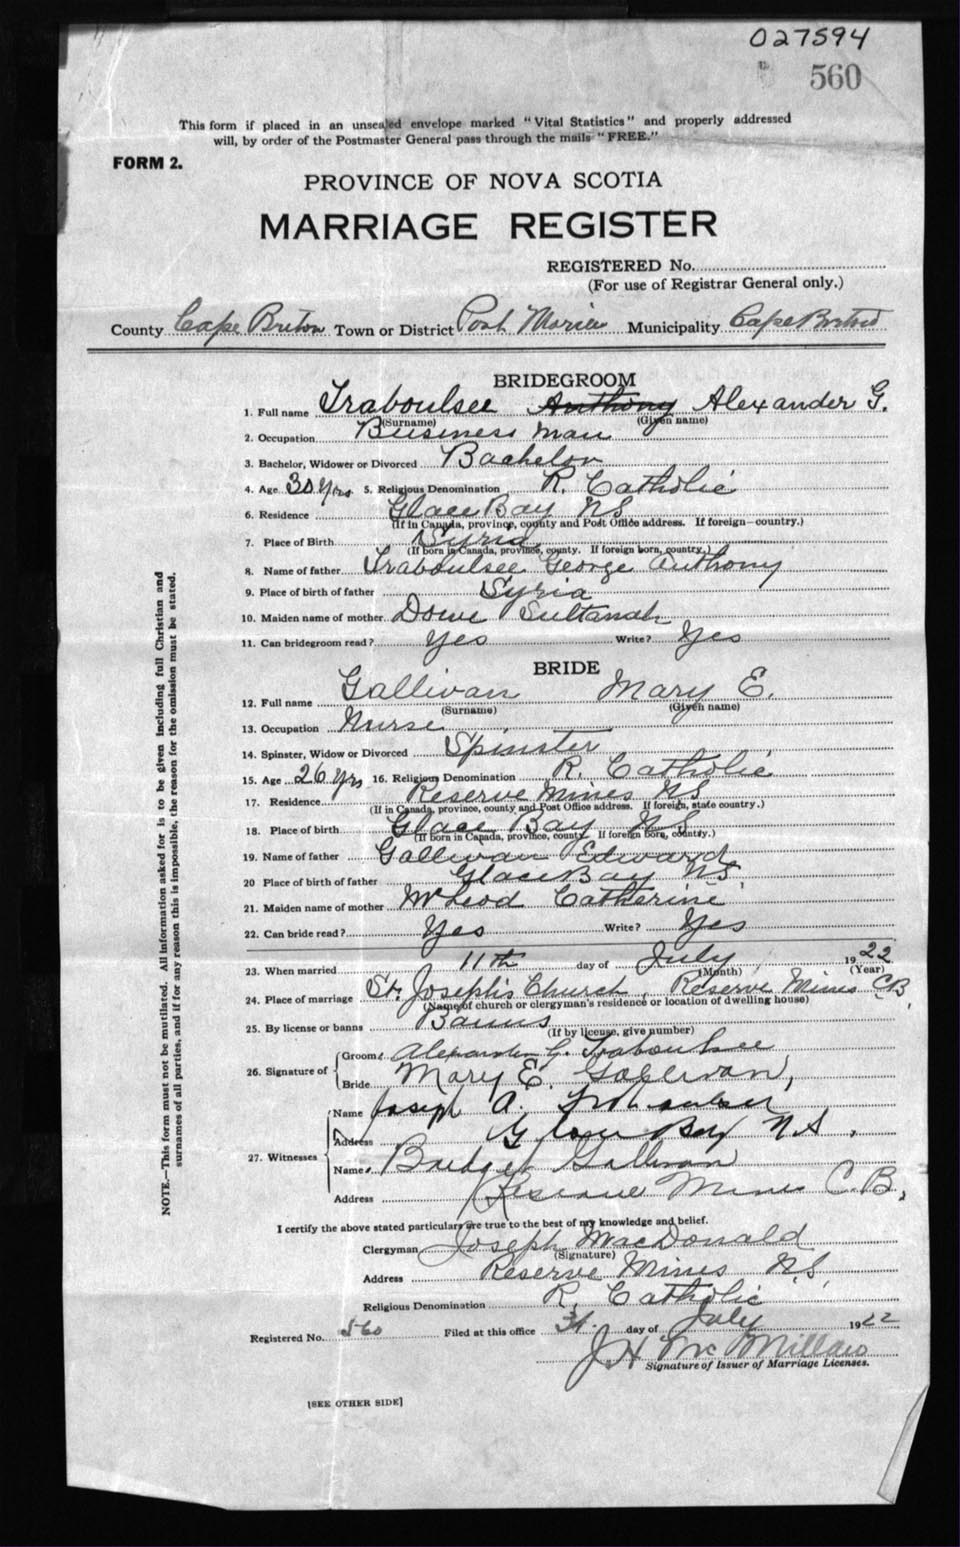 027594
560
This form if placed in an unsealed envelope marked "Vital Statistics" and properly addressed
will, by order of the Postmaster General pass through the mails "FREE."
FORM 2.
PROVINCE OF NOVA SCOTIA
MARRIAGE REGISTER
REGISTERED No.
(For use of Registrar General only.)
County Cape Breton Town or District Port Morien Municipality Cape Breton
BRIDEGROOM
1. Full name Traboulsee Anthony Alexander G.
(Surname) (Given name)
2. Occupation Business man
3. Bachelor, Widower or Divorced Bachelor
4. Age 30 Yrs 5. Religious Denomination R. Catholic
6. Residence Glace Bay NS
(If in Canada, province, county and Post Office address. If foreign—country.)
7. Place of Birth Syria
(If born in Canada, province, county. If foreign born, country.)
8. Name of father Traboulsee George Anthony
9. Place of birth of father Syria
10. Maiden name of mother Dowe Sultanah
11. Can bridegroom read? Yes Write? Yes
BRIDE
12. Full name Gallivan Mary E.
(Surname) (Given name)
13. Occupation Nurse
14. Spinster, Widow or Divorced Spinster
15. Age 26 Yrs 16. Religious Denomination R. Catholic
17. Residence Reserve Mines NS
(If in Canada, province, county and Post Office address. If foreign, state country.)
18. Place of birth Glace Bay NS
(If born in Canada, province, county. If foreign born, country.)
19. Name of father Gallivan Edward
20 Place of birth of father Glace Bay NS
21. Maiden name of mother McLeod Catherine
22. Can bride read? Yes Write? Yes
23. When married 11th day of July 1922
(Month) (Year)
24. Place of marriage St. Joseph's Church, Reserve Mines CB
(Name of church or clergyman's residence or location of dwelling house)
25. By license or banns Banns
(If by license, give number)
26. Signature of
Groom Alexander G. Traboulsee
Bride Mary E. Gallivan,
27. Witnesses
Name Joseph A.
Address Glace Bay NS.
Name Bridget Gallivan
Address Reserve Mines C.B,
I certify the above stated particulars are true to the best of my knowledge and belief.
Clergyman Joseph MacDonald
(Signature)
Address Reserve Mines N.S.
Religious Denomination R. Catholic
Registered No. 560 Filed at this office 31. day of July 1922
J H McMillan
Signature of Issuer of Marriage Licenses.
[SEE OTHER SIDE]
NOTE.—This form must not be mutilated. All information asked for is to be given including full Christian and
surnames of all parties, and if for any reason this is impossible, the reason for the omission must be stated.